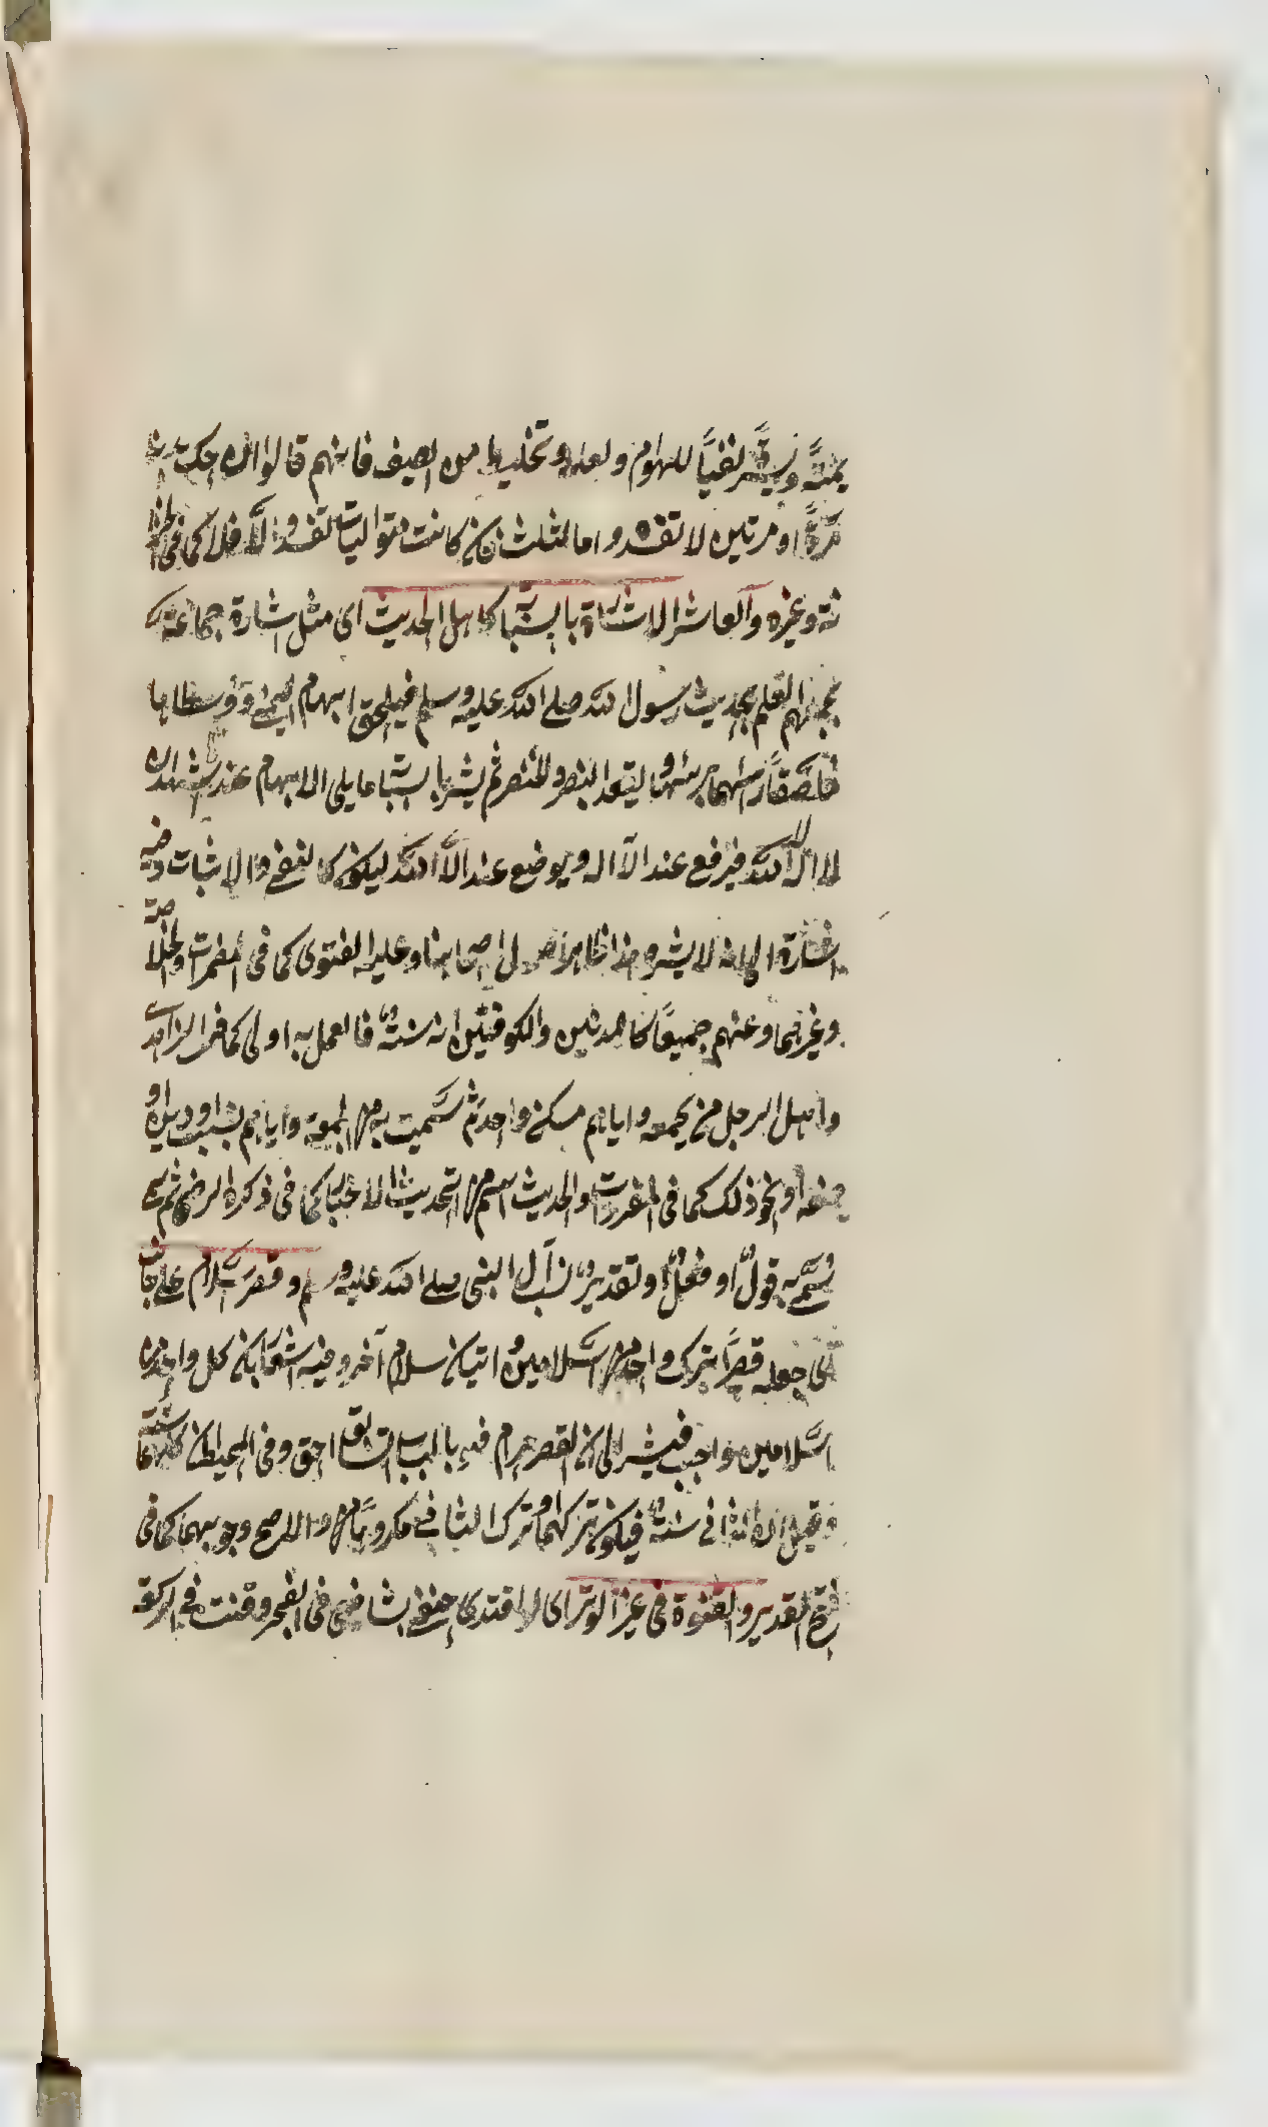 يمنةً ويسرةً نفياً للهوام ولعله وتحليط من الصيف فانهم قالوا ان حك
مرةً او مرتين لا تفسد واما الثلث فان كانت متواليات تفسد والاَّ فلا كما في
نة وغيره والعاشر الاشارة بالسبابة كاهل الحديث اى مثل اشارة جماعة
يجمعهم العلم بحديث رسول الله صلے الله عليه وسلم فيلحق ابهام اليمنے ووسطاها
ملصقاً رأسهما برأسها ويعقد البنصر والخنصر ثم يشير بالسبابة مايلى الابهام عند شهد ان
لا اله الا الله فيرفع عند لا اله ويوضع عند الا الله ليكون كالنفے والاثبات وفيه
اشارة الى انه لا يشير وهذا ظاهر اصول اصحابنا وعليه الفتوى كما فى المضمرات والخلاصة
وغيرهما وعنهم جميعًا كالمدنيين والكوفيين انه سنةٌ فالعمل به اولى كما فى الزاهدى
واهل الرجل من يجمعه واياهم مسكن واحد ثم سميت به من يجمعه واياهم نسب او دين او
صنعة او نحو ذلك كما فى المفردات والحديث اسم من التحديث الاخبار كما فى ذكره الرضى ثم
سمے به قولٌ او فعلٌ او تقديرٌ نسب الى النبى صلے الله عليه وسلم وقصر سلام علے جانب
اى جعله قصراً بترك واحد من السلامين او اتيان سلام آخر وفيه اشعار بان كل واحد من
السلامين واجب فيشير الى ان القصر حرام فهو بالباب السابق احق وفى المحيط ان كليهما سنة
وقيل ان الثانى سنةٌ فيكون تركهما او ترك الثانے مكروهًا والاصح وجوبهما كما فى
فتح القدير والقنوة فى غير الوتر اى لو اقتدى حنفے بشافعى فى الفجر وقنت فے الركعة